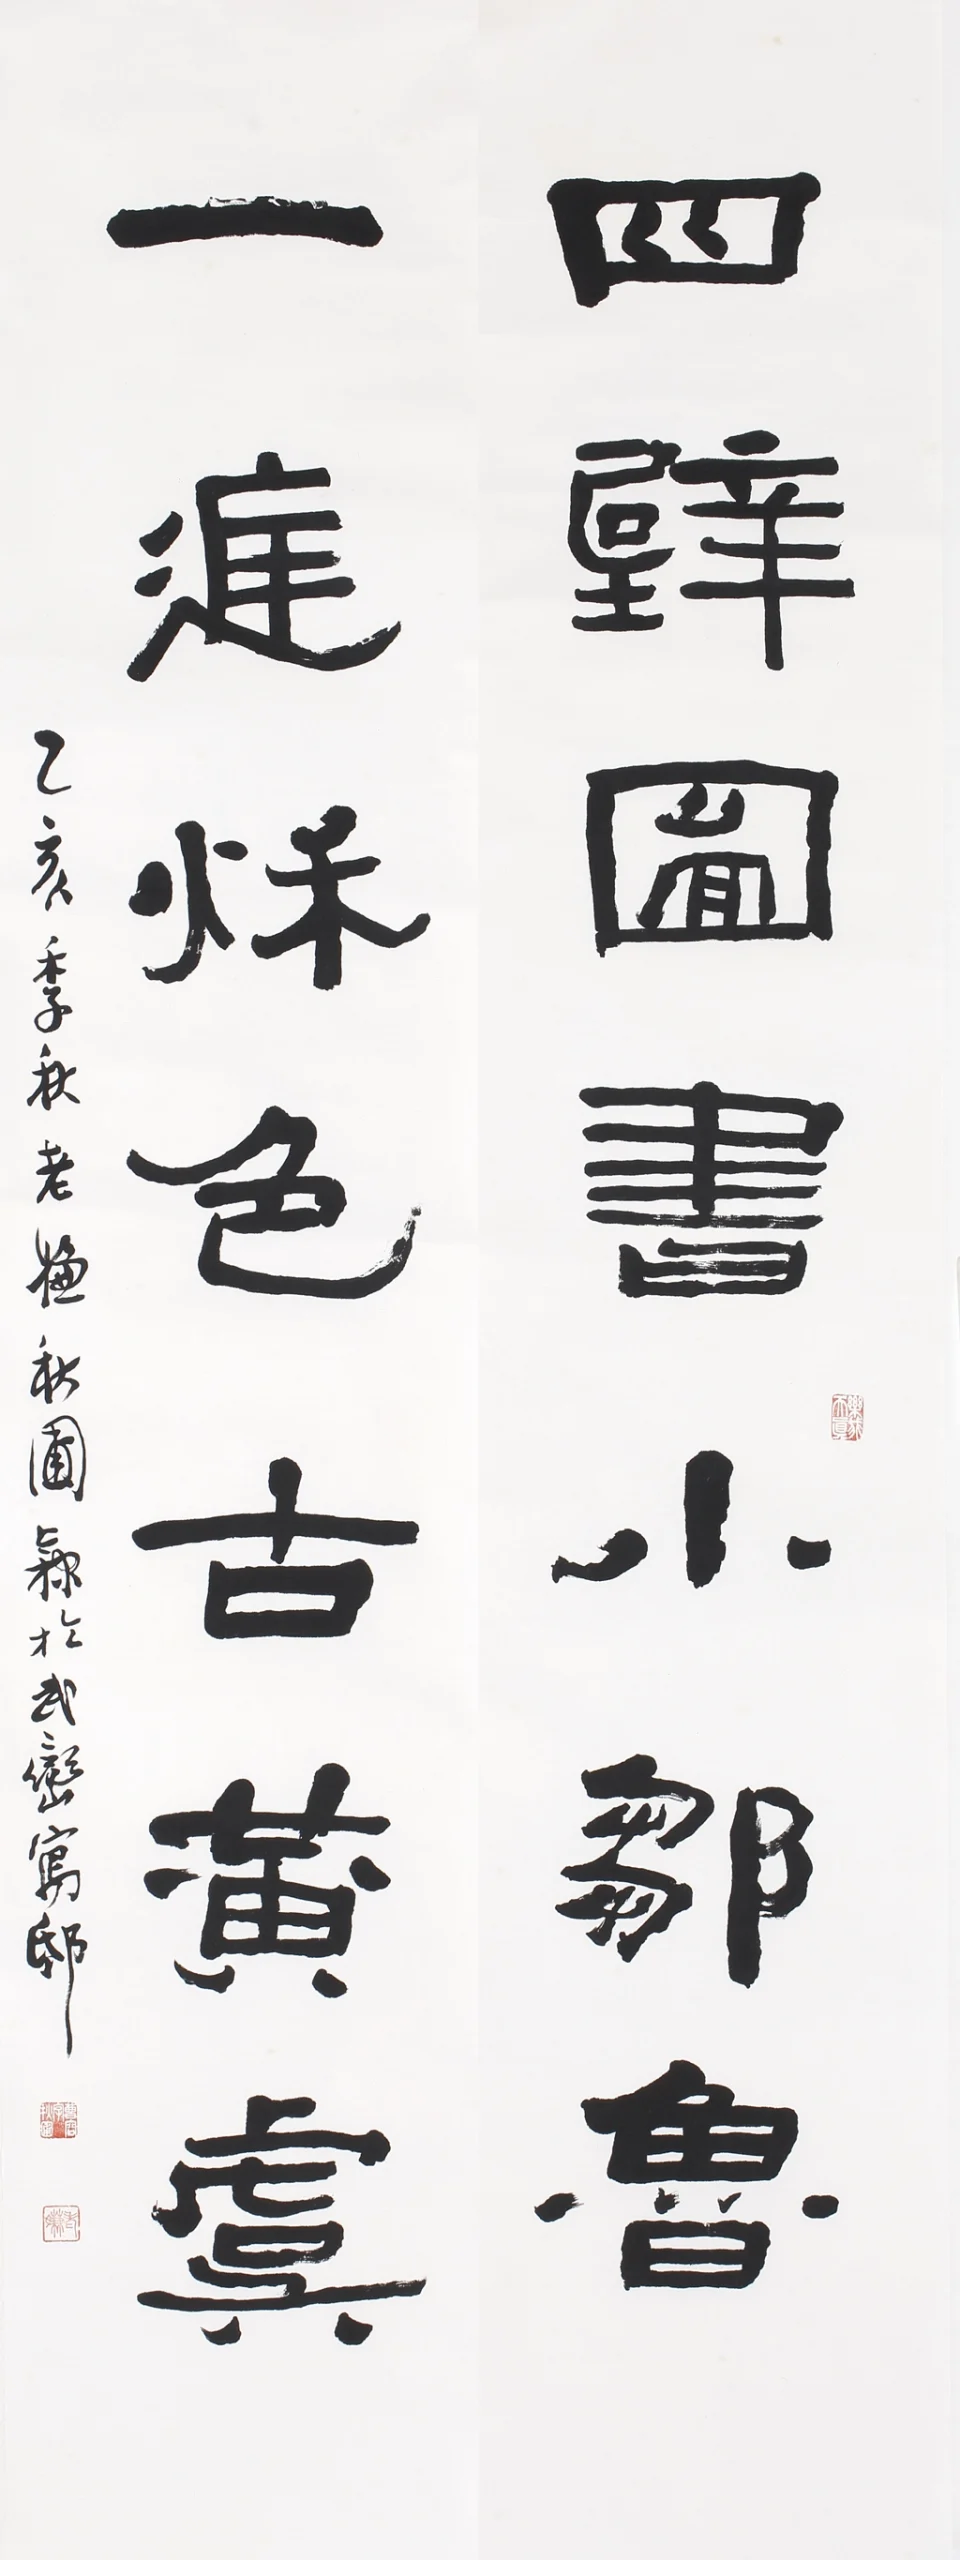 四壁圖書小鄒魯
一庭秌色古黃虞
乙亥季秋老秋圃錄於武巒寫邸